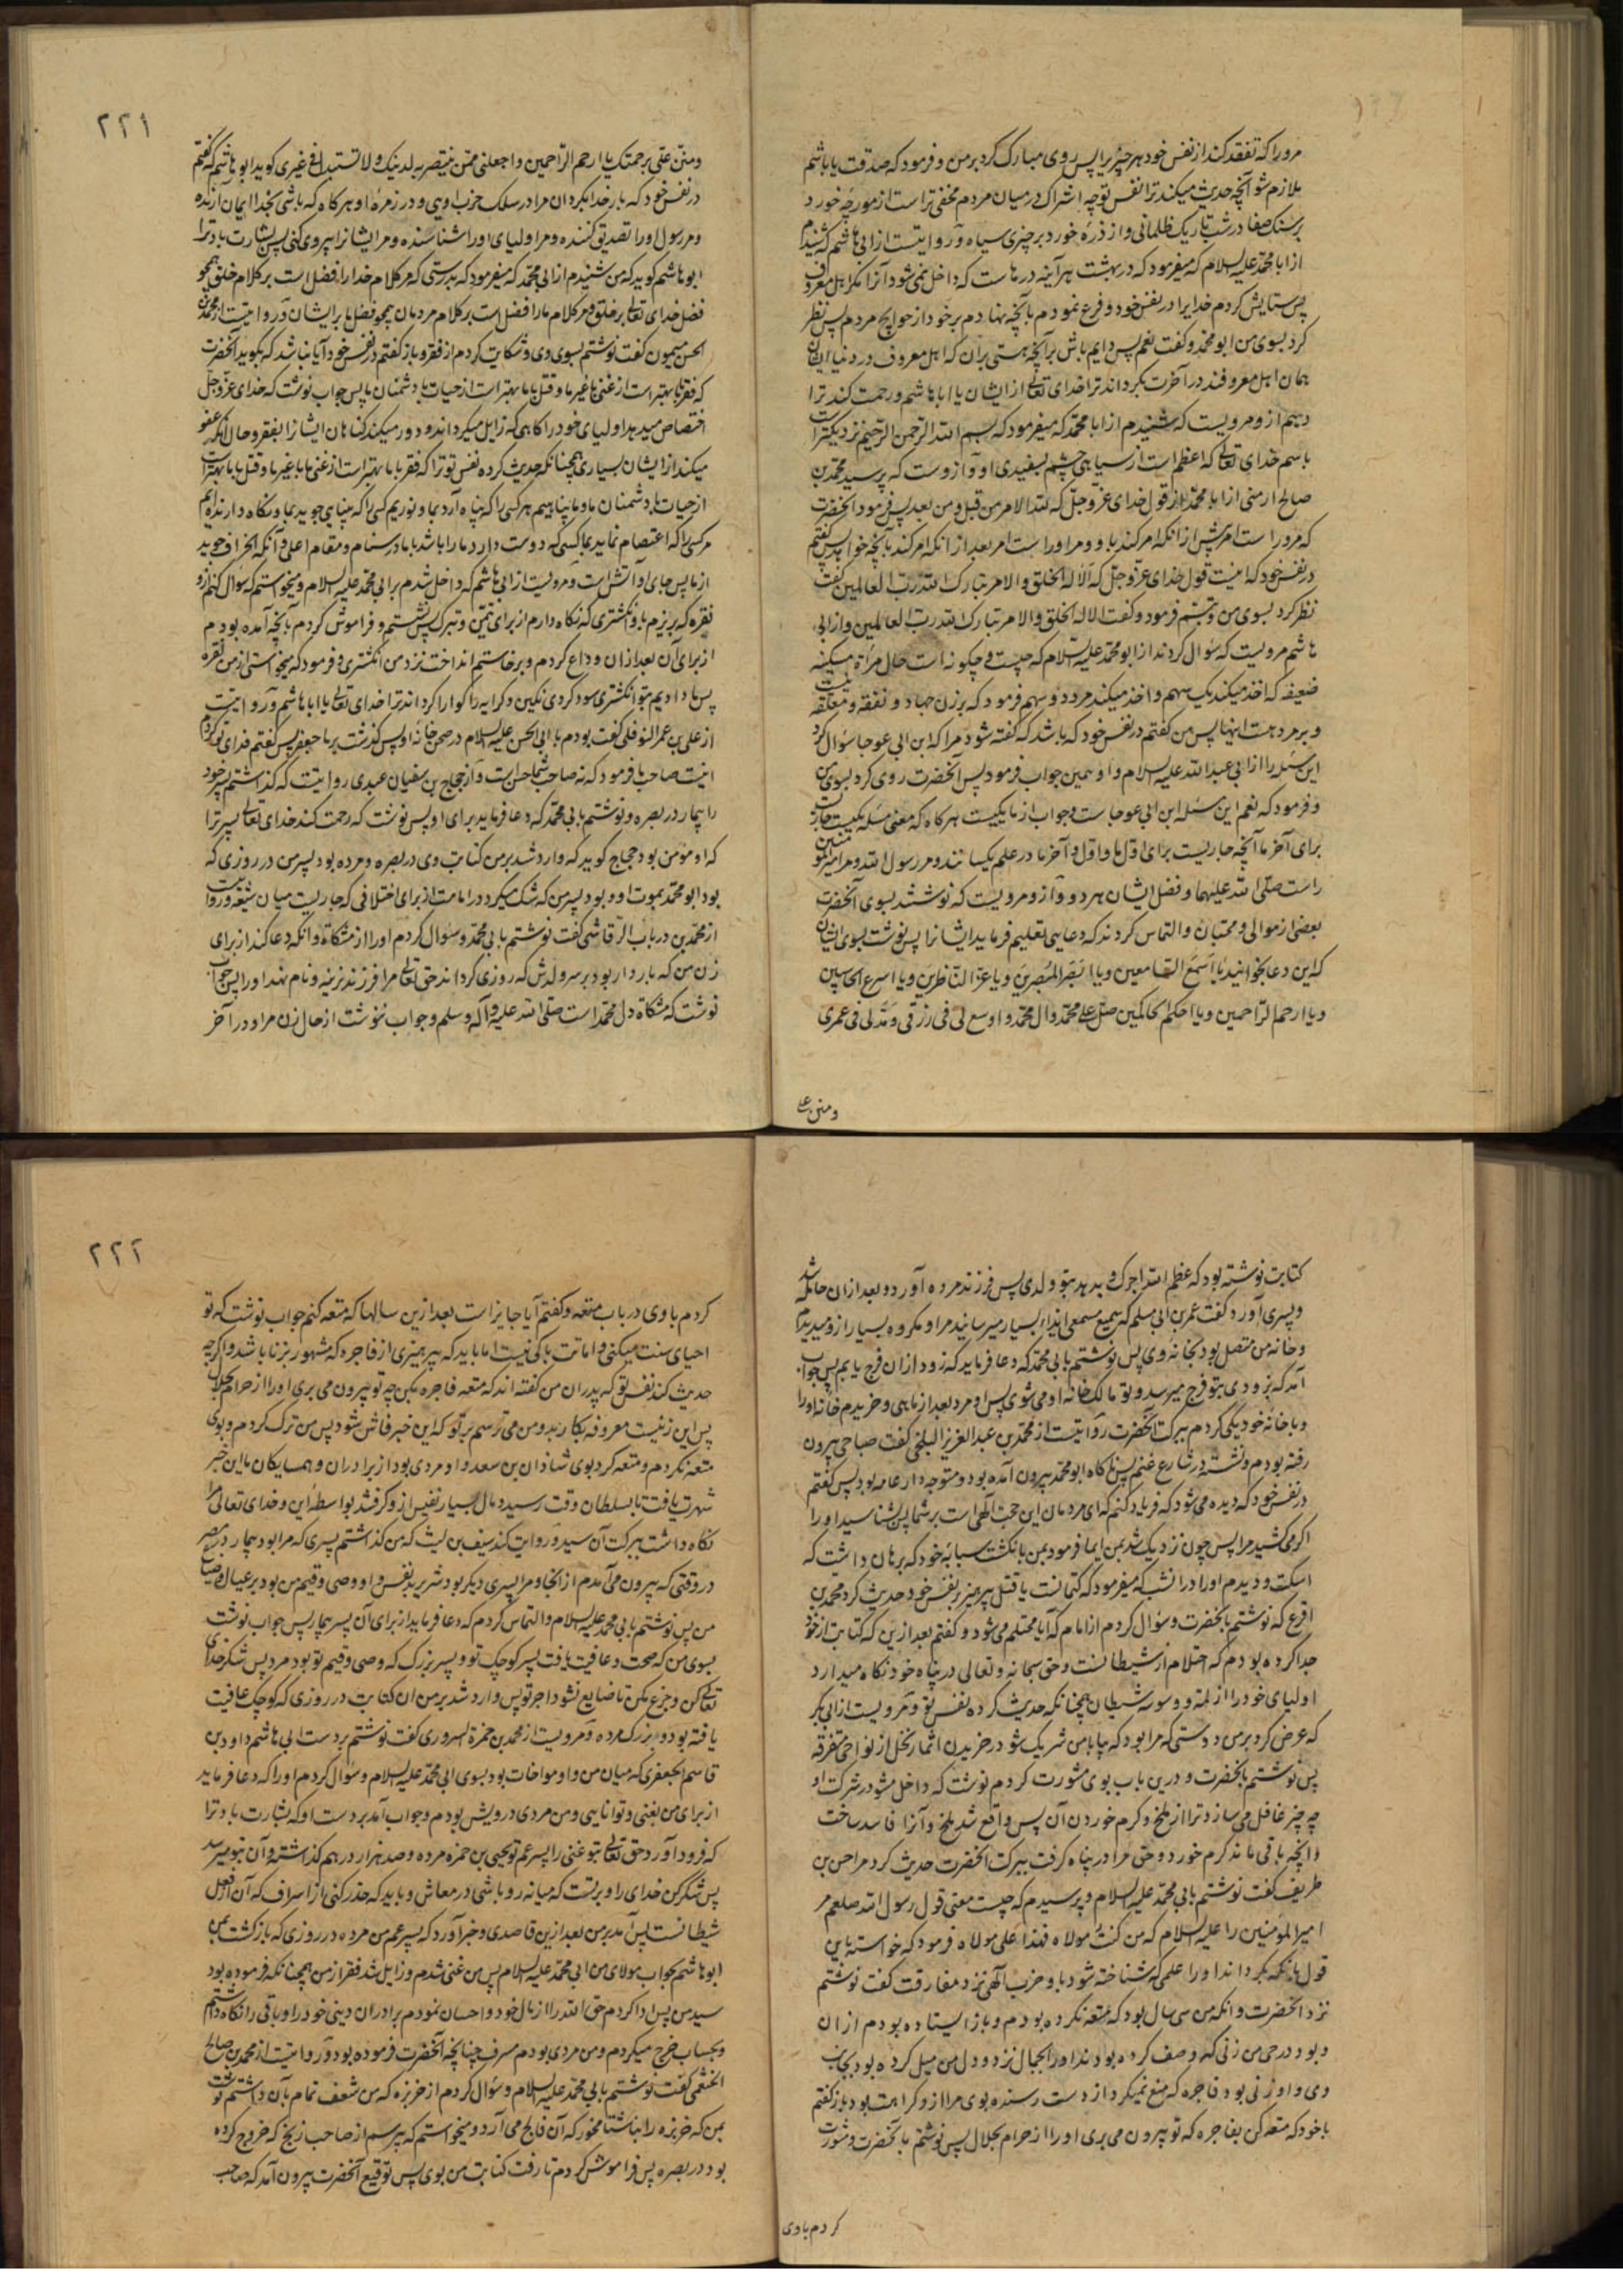 مرو را که تفقد کند از نفس خود هر چیز را پس روی مبارک کرد بر من و فرمود که صدقت یا با هاشم
ملازم شو آنچه حدیث میکند ترا نفس تو چه اشراک در میان مردم مخفی تر است از مورچه خورد
بر سنک صفا در شب تاریک ظلمانی و از ذره خورد بر چیزی سیاه و روایتست از ابی هاشم که شنیدم
از ابا محمد علیه السلام که میفرمود که در بهشت هر آینه در هاست که داخل نمی شود آنرا مکر اهل معروف
پس ستایش کردم خدایرا در نفس خود و فرع نمودم بآنچه نهادم بر خود از حوایج مردم پس نظر
کرد بسوی من ابو محمد و کفت نعم پس دایم باش بر آنچه هستی بران که اهل معروف در دنیا ایشان
همان اهل معروفند در آخرت بکرداند ترا خدای تعالی از ایشان یا ابا هاشم و رحمت کند ترا
و هم ازو مرویست که شنیدم از ابا محمد که میفرمود که بسم الله الرحمن الرحیم نزدیکتر است
باسم خدای تعالی که اعظم است از سیاهی چشم بسفیدی او و ازوست که پرسید محمد بن
صالح ارمنی از ابا محمد از قول خدای عز و جل که لله الامر من قبل و من بعد پس فرمود آنحضرت
که مرو راست امر پیش از انکه امر کند باو و مرو راست امر بعد از انکه امر کند بآنچه خواهد پس کفتم
در نفس خود که اینست قول خدای عز و جل که الا له الخلق والامر تبارک الله رب العالمین کفت
نظر کرد بسوی من و تبسم فرمود و کفت الا له الخلق والامر تبارک الله رب العالمین و از ابی
هاشم مرویست که سؤال کردند از ابو محمد علیه السلام که چیست و چکونه است حال مرأة مسکینه
ضعیفه که اخذ میکند یک سهم و اخذ میکند مرد دو سهم فرمود که بر زن جهاد و نفقه و معقله نیست
و بر مردست اینها پس من کفتم در نفس خود که باشد که کفته شود مرا که ابن ابی عوجا سؤال کرد
این مسئله را از ابی عبد الله علیه السلام و او همین جواب فرمود پس آنحضرت روی کرد بسوی من
و فرمود که نعم این مسئله ابن ابی عوجاست و جواب از ما یکیست هر کاه که معنی مسئله یکیست جاریست
برای آخر ما آنچه جاریست برای اول ما و اول و آخر ما در علم یکسانند و مر رسول الله و مر امیر المؤمنین
راست صلی الله علیهما و فضل ایشان هر دو و ازو مرویست که نوشتند بسوی آنحضرت
بعضی از موالی و محبان و التماس کردند که دعایی تعلیم فرماید ایشانرا پس نوشت بسوی ایشان
که این دعا بخوانید یا اسمع السامعین و یا ابصر المبصرین و یا عز الناظرین و یا اسرع الحاسبین
و یا ارحم الراحمین و یا احکم الحاکمین صل علی محمد و آل محمد و اوسع لی فی رزقی و مد لی فی عمری
و منن علی
۲۲۱
ومنن علی برحمتک یا ارحم الراحمین و اجعلنی ممن تنتصر به لدینک ولا تستبدل فی غیری کوید ابو هاشم که کفتم
در نفس خود که بار خدایا بکردان مرا در سلک حزب اوبی و در زمره او هر کاه که باشی بخدا ایمان آرنده
و مر رسول او را تصدیق کننده و مر اولیای او را شناسنده و مر ایشانرا پیروی کنی پس بشارت باد ترا
ابو هاشم کوید که من شنیدم از ابی محمد که میفرمود که بدرستی که مر کلام خدا را فضل است بر کلام خلق همچو
فضل خدای تعالی بر خلق و مر کلام ما را فضل است بر کلام مردمان همچو فضل ما بر ایشان و روایتست از محمد بن
الحسن میمون کفت نوشتم بسوی وی و شکایت کردم از فقر و باز کفتم در نفس خود آیا نباشد که بکوید آنحضرت
که فقر با ما بهتر است از غنی با غیر ما و قتل با ما بهتر است از حیات با دشمنان ما پس جواب نوشت که خدای عز و جل
اختصاص میدهد اولیای خود را کاهی که زایل میکرداند و دور میکند کناهان ایشانرا بفقر و حال آنکه عفو
میکند از ایشان بسیاری همچنانکه حدیث کرده نفس تو ترا که فقر با ما بهتر است از غنی با غیر ما و قتل با ما بهتر است
از حیات با دشمنان ما و ما پناهیم هر کس را که پناه آرد بما و نوریم کسی را که بینایی جوید بما و نکاه دارنده ایم
هر کسی را که اعتصام نماید بما کسی که دوست دارد ما را باشد با ما در سنام و مقام اعلی و آنکه انحراف جوید
از ما پس جای او آتش است و مرویست از ابی هاشم که داخل شدم بر ابی محمد علیه السلام و میخواستم که سؤال کنم ازو
نقره که بریزم باو انکشتری که نکاه دارم از برای تیمن و تبرک پس نشستم و فراموش کردم بآنچه آمده بودم
از برای آن بعد از ان وداع کردم و برخاستم انداخت نزد من انکشتری و فرمود که میخواستی از من نقره
پس ما دادیم بتو انکشتری سود کردی نکین و کرایه را کوارا کرداند ترا خدای تعالی یا ابا هاشم و روایتست
از علی بن عمر النوفلی کفت بودم با ابی الحسن علیه السلام در صحن خانه او پس کذشت بر ما جعفر پس کفتم فدای تو کردم
اینست صاحب ما فرمود که نه صاحب شما حسن است و از حجاج بن سفیان عبدی روایتست که کذاشتم پسر خود
را بیمار در بصره و نوشتم بابی محمد که دعا فرماید برای او پس نوشت که رحمت کند خدای تعالی پسر ترا
که او مؤمن بود حجاج کوید که وارد شد بر من کتابت وی در بصره و مرده بود پسر من در روزی که
بود ابو محمد بموت او و بود پسر من که شک میکرد در امامت از برای اختلافی که جاریست میان شیعه و روایتست
از محمد بن درباب الرقاشی کفت نوشتم بابی محمد و سؤال کردم او را از مشکاة و انکه دعا کند از برای
زن من که باردار بود بر سر ولدش که روزی کرداند حق تعالی مرا فرزند نرینه و نام نهد او را پس جواب
نوشت که مشکاة دل محمد است صلی الله علیه و آله و سلم و جواب ننوشت از حال زن مرا و در آخر
کتابت نوشته بود که عظم الله اجرک و بدهد بتو ولدی پس فرزند مرده آورد و بعد از ان حامله شد
و پسری آورد کفت عمر بن ابی مسلم که سمیع مسمعی ایذاء بسیار میرسانید مرا و مکروه بسیار ازو میدیدم
و خانه من متصل بود بخانه وی پس نوشتم بابی محمد که دعا فرماید که زود از ان فرج یابم پس جواب
آمد که بزودی بتو فرج میرسد و تو مالک خانه او می شوی پس او مرد بعد از ماهی و خریدم خانه او را
و با خانه خود یکی کردم ببرکت آنحضرت روایتست از محمد بن عبد العزیز البلخی کفت صباحی بیرون
رفته بودم و نشسته در شارع غنم پس ناکاه ابو محمد بیرون آمده بود و متوجه دار عامه بود پس کفتم
در نفس خود که دیده می شود که فریاد کنم که ای مردمان این حجت الهی است بر شما پس بشناسید او را
اکر می کشید مرا پس چون نزدیک شد بمن ایما فرمود بمن بانکشت سبابه خود که بر دهان داشت که
اسکت و دیدم او را در انشب که میفرمود که کتمانست یا قتل بپرهیز بنفس خود حدیث کرد محمد بن
اقرع که نوشتم بآنحضرت و سؤال کردم از امام که آیا محتلم می شود و کفتم بعد ازین که کتابت از خود
جدا کرده بودم که احتلام از شیطانست و حق سبحانه و تعالی در پناه خود نکاه میدارد
اولیای خود را از لمّه و وسوسه شیطان همچنانکه حدیث کرده نفس تو و مرویست از ابی بکر
که عرض کرد بر من دوستی که مرا بود که بیا با من شریک شو در خریدن اثمار نخل از نواحی متفرقه
پس نوشتم بآنحضرت و درین باب بوی مشورت کردم نوشت که داخل مشو در شرکت او
چه چیز غافل می سازد ترا از ملخ و کرم خوردن آن پس واقع شد ملخ و آنرا فاسد ساخت
و آنچه باقی ماند کرم خورد و حق مرا در پناه کرفت ببرکت آنحضرت حدیث کرد مرا حسن بن
ظریف کفت نوشتم بابی محمد علیه السلام و پرسیدم که چیست معنی قول رسول الله صلعم مر
امیر المؤمنین را علیه السلام که من کنت مولاه فهذا علی مولاه فرمود که خواسته باین
قول بانکه بکرداند او را علمی که شناخته شود باو حزب الهی نزد مفارقت کفت نوشتم
نزد آنحضرت و انکه من سی سال بود که متعه نکرده بودم و باز ایستاده بودم از ان
و بود در حی من زنی که وصف کرده بودند او را بجمال نزد و دل من میل کرده بود بجانب
وی و او زنی بود فاجره که منع نمیکرد از دست رسنده بوی مرا ازو کراهت بود باز کفتم
با خود که متعه کن بفاجره که تو بیرون می بری او را از حرام بحلال پس نوشتم بآنحضرت و مشورت
کردم باوی
۲۲۲
کردم باوی در باب متعه و کفتم آیا جایز است بعد ازین سالها که متعه کنم جواب نوشت که تو
احیای سنت میکنی و اماتت باکی نیست اما باید که بپرهیزی از فاجره که مشهور بزنا باشد و اکر چه
حدیث کند نفس تو که پدران من کفته اند که متعه فاجره بکن چه تو بیرون می بری او را از حرام بحلال
پس این زنیست معروفه بکار بد و من می ترسم بر تو که این خبر فاش شود پس من ترک کردم و بوی
متعه نکردم و متعه کرد بوی شاذان بن سعد و او مردی بود از برادران و همسایکان ما این خبر
شهرت یافت تا بسلطان وقت رسید و مال بسیار نفیس ازو کرفتند بواسطه این و خدای تعالی مرا
نکاه داشت ببرکت آن سید و روایت کند سیف بن لیث که من کذاشتم پسری که مرا بود بیمار در مصر
در وقتی که بیرون می آمدم از انجا و مرا پسری دیکر بود شریر بنفس و او وصی و قیم من بود بر عیال و ضیاع
من پس نوشتم بابی محمد علیه السلام و التماس کردم که دعا فرماید از برای آن پسر بیمار پس جواب نوشت
بسوی من که صحت و عافیت یافت پسر کوچک تو و پسر بزرک که وصی و قیم تو بود مرد پس شکر خدای
تعالی کن و جزع مکن تا ضایع نشود اجر تو پس وارد شد بر من ان کتابت در روزی که کوچک عافیت
یافته بود و بزرک مرده و مرویست از محمد بن حمزة السروری کفت نوشتم بر دست ابی هاشم داود بن
قاسم الجعفری که میان من و او مواخات بود بسوی ابی محمد علیه السلام و سؤال کردم او را که دعا فرماید
از برای من بغنی و توانایی و من مردی درویش بودم و جواب آمد بر دست او که بشارت باد ترا
که فرود آورد حق تعالی بتو غنی را پسر عم تو یحیی بن حمزه مرده و صد هزار درهم کذاشته و آن بتو میرسد
پس شکر کن خدای را و بر تست که میانه رو باشی در معاش و باید که حذر کنی از اسراف که آن از فعل
شیطانست پس آمد بر من بعد ازین قاصدی و خبر آورد که پسر عم من مرده در روزی که بازکشت بمن
ابو هاشم بجواب مولای من ابی محمد علیه السلام پس من غنی شدم و زایل شد فقر از من همچنانکه فرموده بود
سید من پس ادا کردم حق الله را از مال خود و احسان نمودم برادران دینی خود را و باقی را نکاه داشتم
و بحساب خرج میکردم و من مردی بودم مسرف چنانچه آنحضرت فرموده بود و روایتست از محمد بن صالح
الخثعمی کفت نوشتم بابی محمد علیه السلام و سؤال کردم از خربزه که من شعف تمام بآن داشتم نوشت
بمن که خربزه را بناشتا مخور که آن فالج می آرد و میخواستم که بپرسم از صاحب زنج که خروج کرده
بود در بصره پس فراموش کردم تا رفت کتابت من بوی پس توقیع آنحضرت بیرون آمد که صاحب